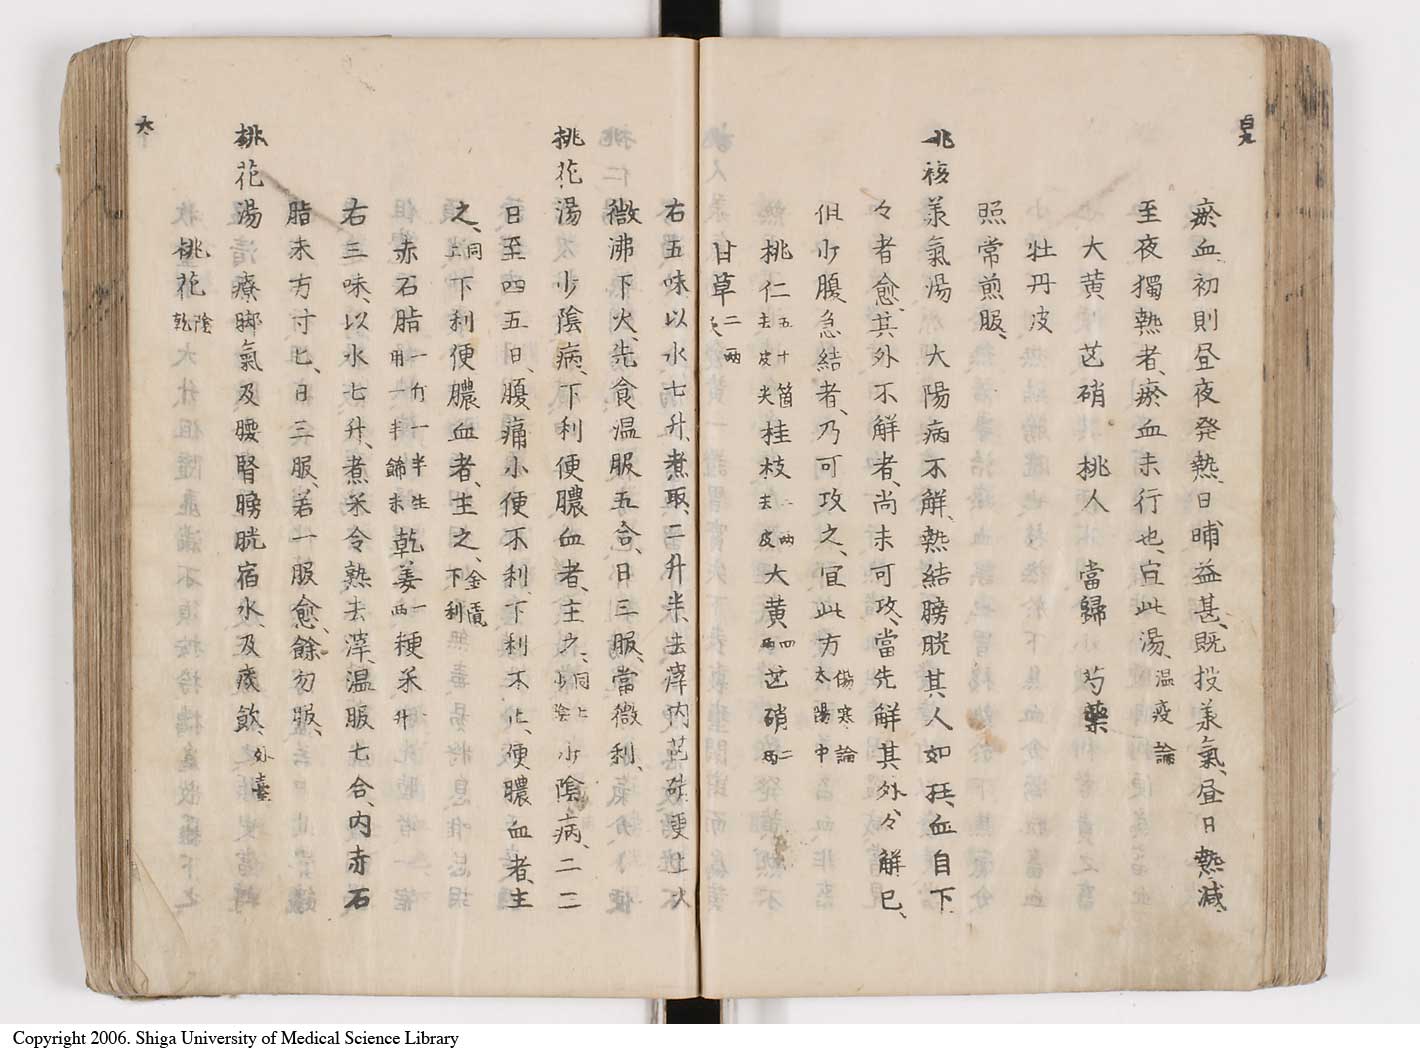 瘀血初則昼夜発熱、日晡益甚、既投姜氣、昼日熱減、
至夜獨熱者、瘀血未行也、宜此湯、温疫論
大黄 芒硝 桃人 當歸 芍薬
牡丹皮
照常煎服、
桃核姜氣湯 大陽病不解、熱結膀胱、其人如狂、血自下
々者愈、其外不解者、尚未可攻、當先解其外、々解已、
但少腹急結者、乃可攻之、宜此方 傷寒論太陽中
桃仁 五十箇去皮尖 桂枝 二両去皮 大黄 四両 芒硝 二両
甘草 二両
右五味以水七升、煮取、二升半、去滓、内芒硝、更上火
微沸下火、先食温服五合、日三服、當微利、
桃花湯 少陰病、下利便膿血者、主之、同上少陰 少陰病、二三
日至四五日、腹痛、小便不利、下利不止、便膿血者、主
之、同上 下利便膿血者、主之、金匱下利
赤石脂 一斤一半用半篩末 乾姜 一両 粳米 一升
右三味、以水七升、煮米令熟、去滓、温服七合、内赤石
脂末方寸匕、日三服、若一服愈、餘勿服、
桃花湯 療脚氣及腰腎膀胱宿水及痰飲、外臺
桃花 陰乾